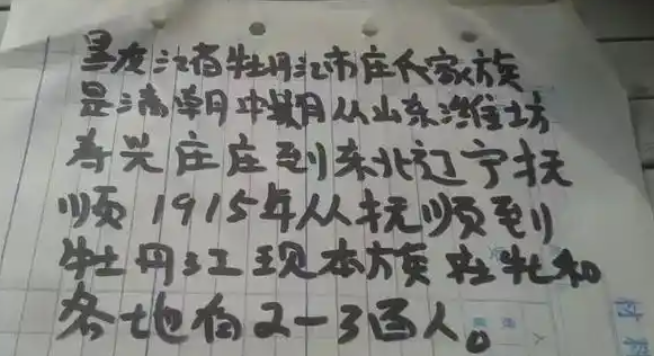 黑龙江省牡丹江市庄氏家族
是清朝中期从山东潍坊
寿光庄庄到东北辽宁抚
顺1915年从抚顺到
牡丹江现本族在牡和
各地有2-3百人。